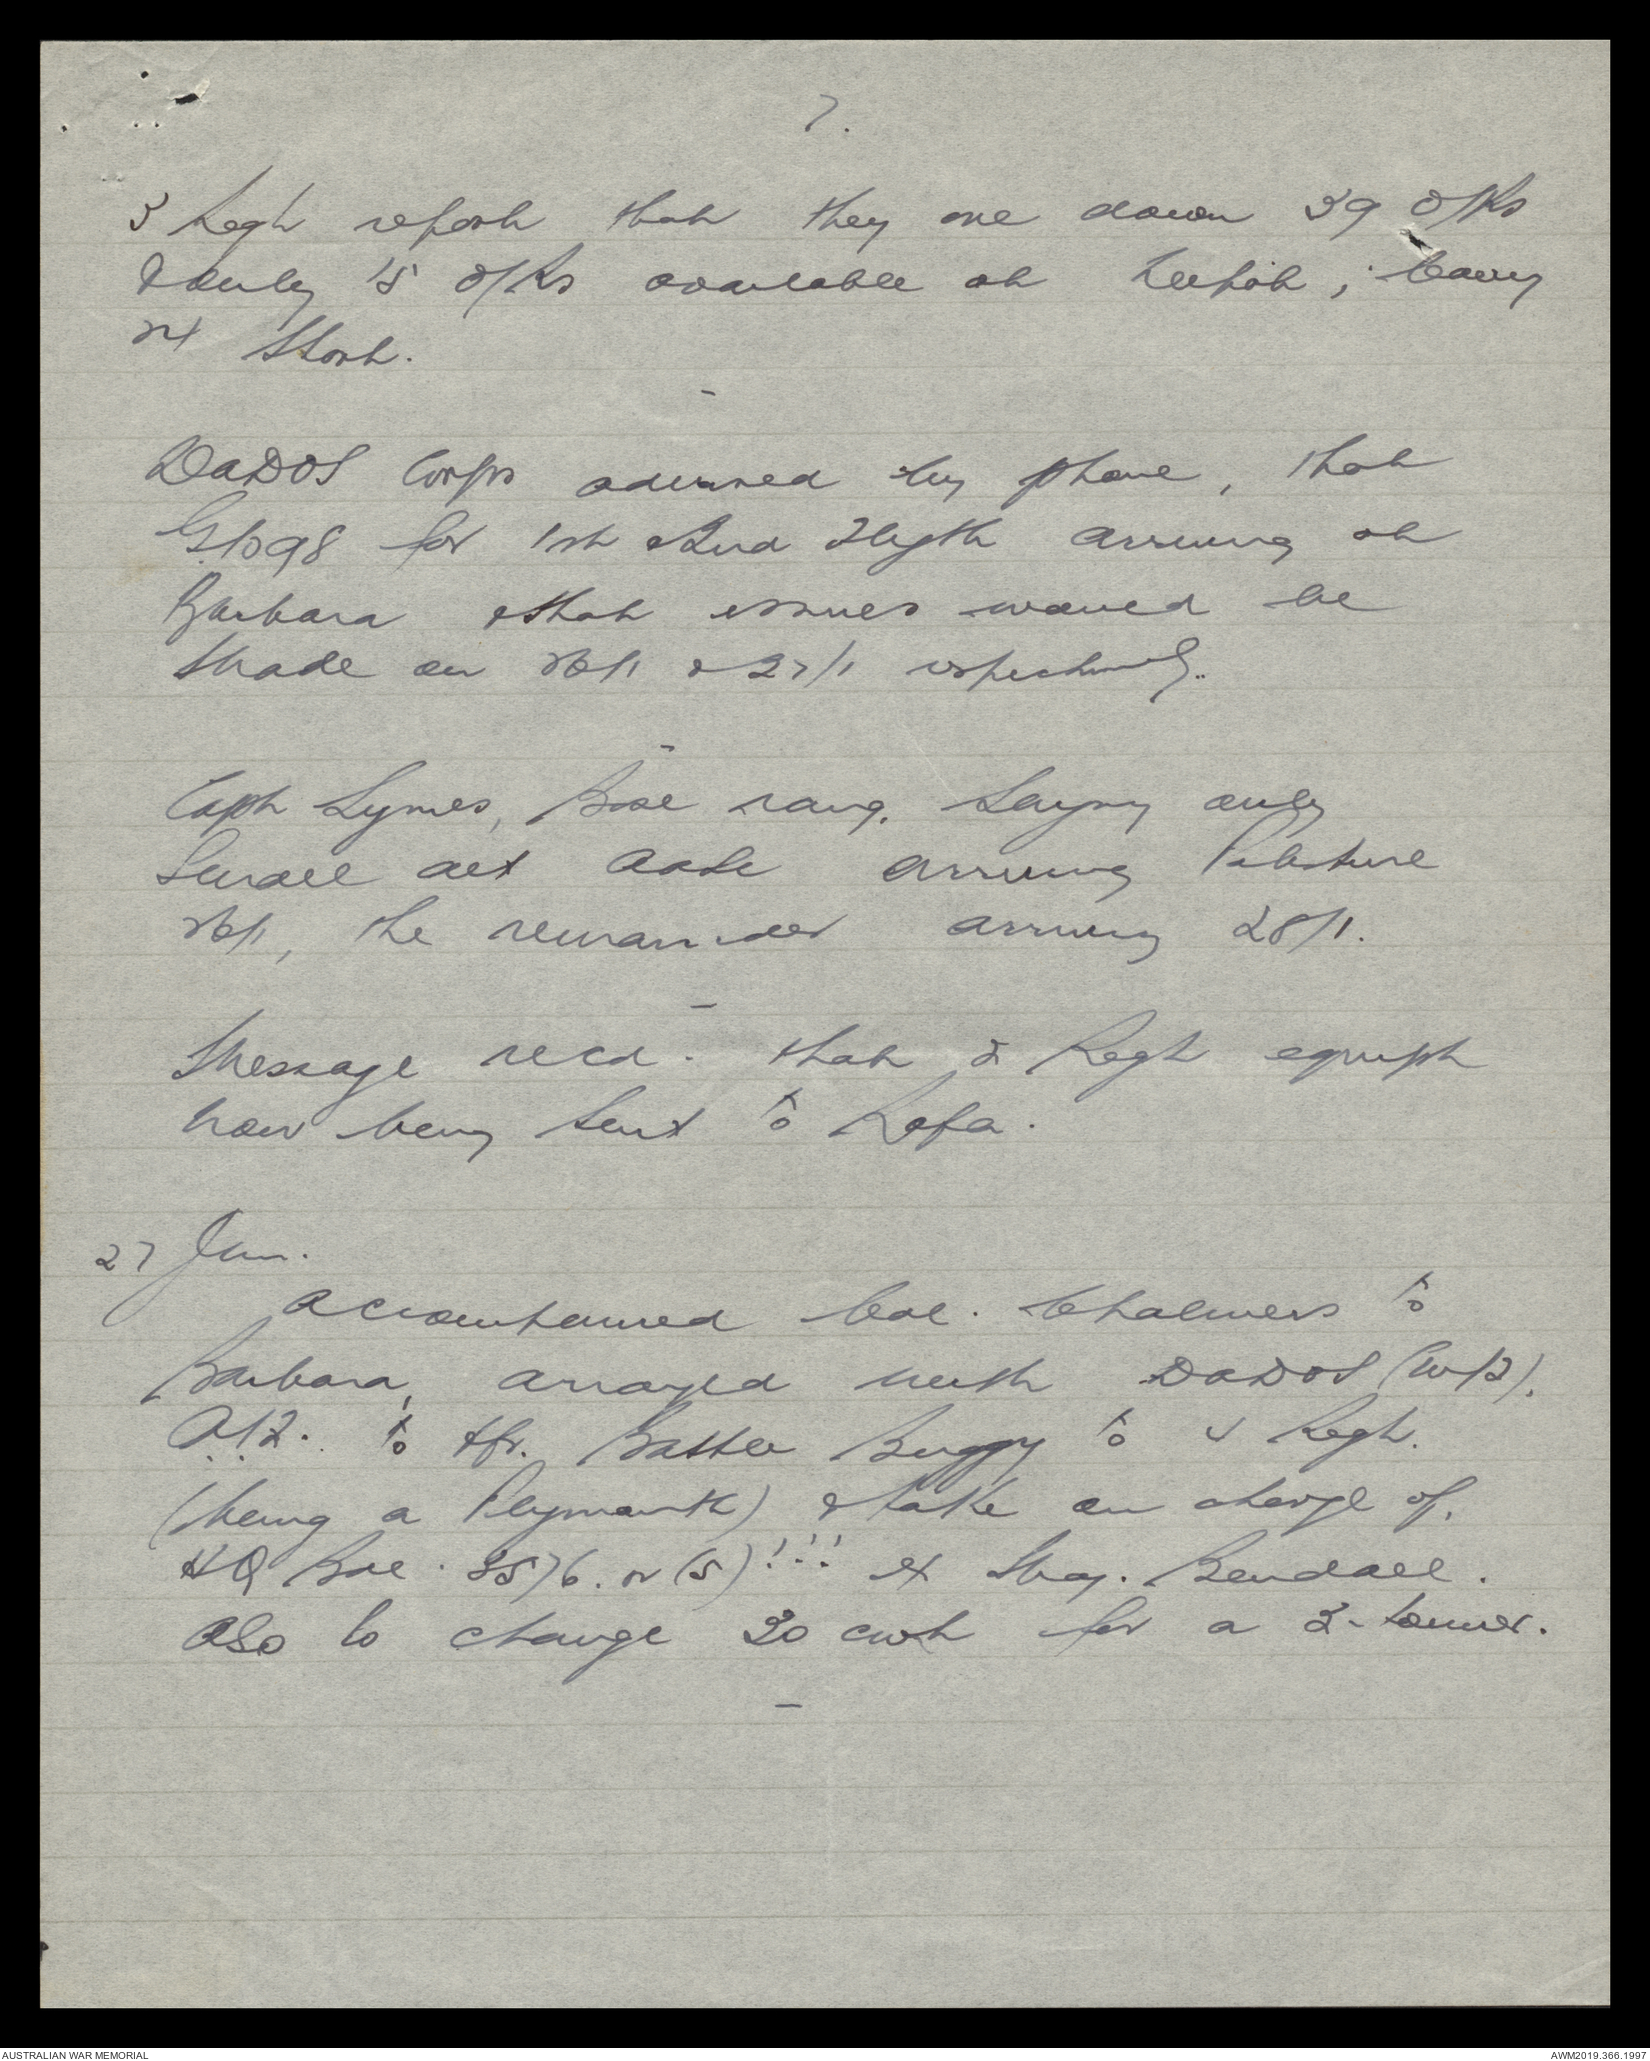 7.
3 Regt report that they are down 39 O/Rs
& only 15 O/Rs available at ; leaving
24 short.
DADOS Corps advised by phone, that
G1098 for 1st & 2nd Flight arriving at
Barbara & that issues would be
made on 26/1 & 27/1 respectively.
Capt Symes, Base rang. Saying only
Small det arriving Palestine
26/1, the remainder arriving 28/1.
Message recd. that 2 Regt equipt
now being sent to Rafa.
27 Jan.
Accompanied Col. Chalmers to
Barbara, arranged with DADOS
to tfr. Battle Buggy to 4 Regt.
(being a Plymouth) & take on charge
HQ Bde. 3576. or (5)!!! ex Maj. Bendall.
Also to change 30 cwt for a 3-tonner.
AUSTRALIAN WAR MEMORIAL
AWM2019.366.1997